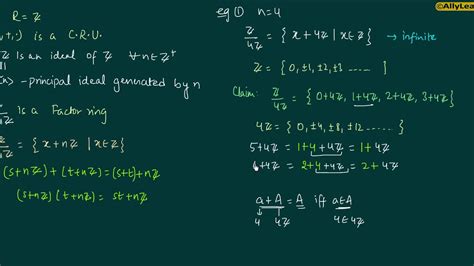 R = ℤ
,+,·) is a C.R.U.
is an ideal of ℤ ∀n∈ℤ⁺
n> - principal ideal generated by n
ℤ/nℤ is a Factor ring
= { x+nℤ | x∈ℤ }
(s+nℤ)+(t+nℤ)=(s+t)+nℤ
(s+nℤ)(t+nℤ) = st+nℤ
©AllyLea
eg ① n=4
ℤ/4ℤ = { x+4ℤ | x∈ℤ } → infinite
ℤ = { 0, ±1, ±2, ±3 ..... }
Claim: ℤ/4ℤ = { 0+4ℤ, 1+4ℤ, 2+4ℤ, 3+4ℤ }
4ℤ = { 0, ±4, ±8, ±12 ...... }
5+4ℤ = 1+4+4ℤ = 1+4ℤ
6+4ℤ = 2+4+4ℤ = 2+4ℤ
a+A = A iff a∈A
4 4ℤ 4∈4ℤ